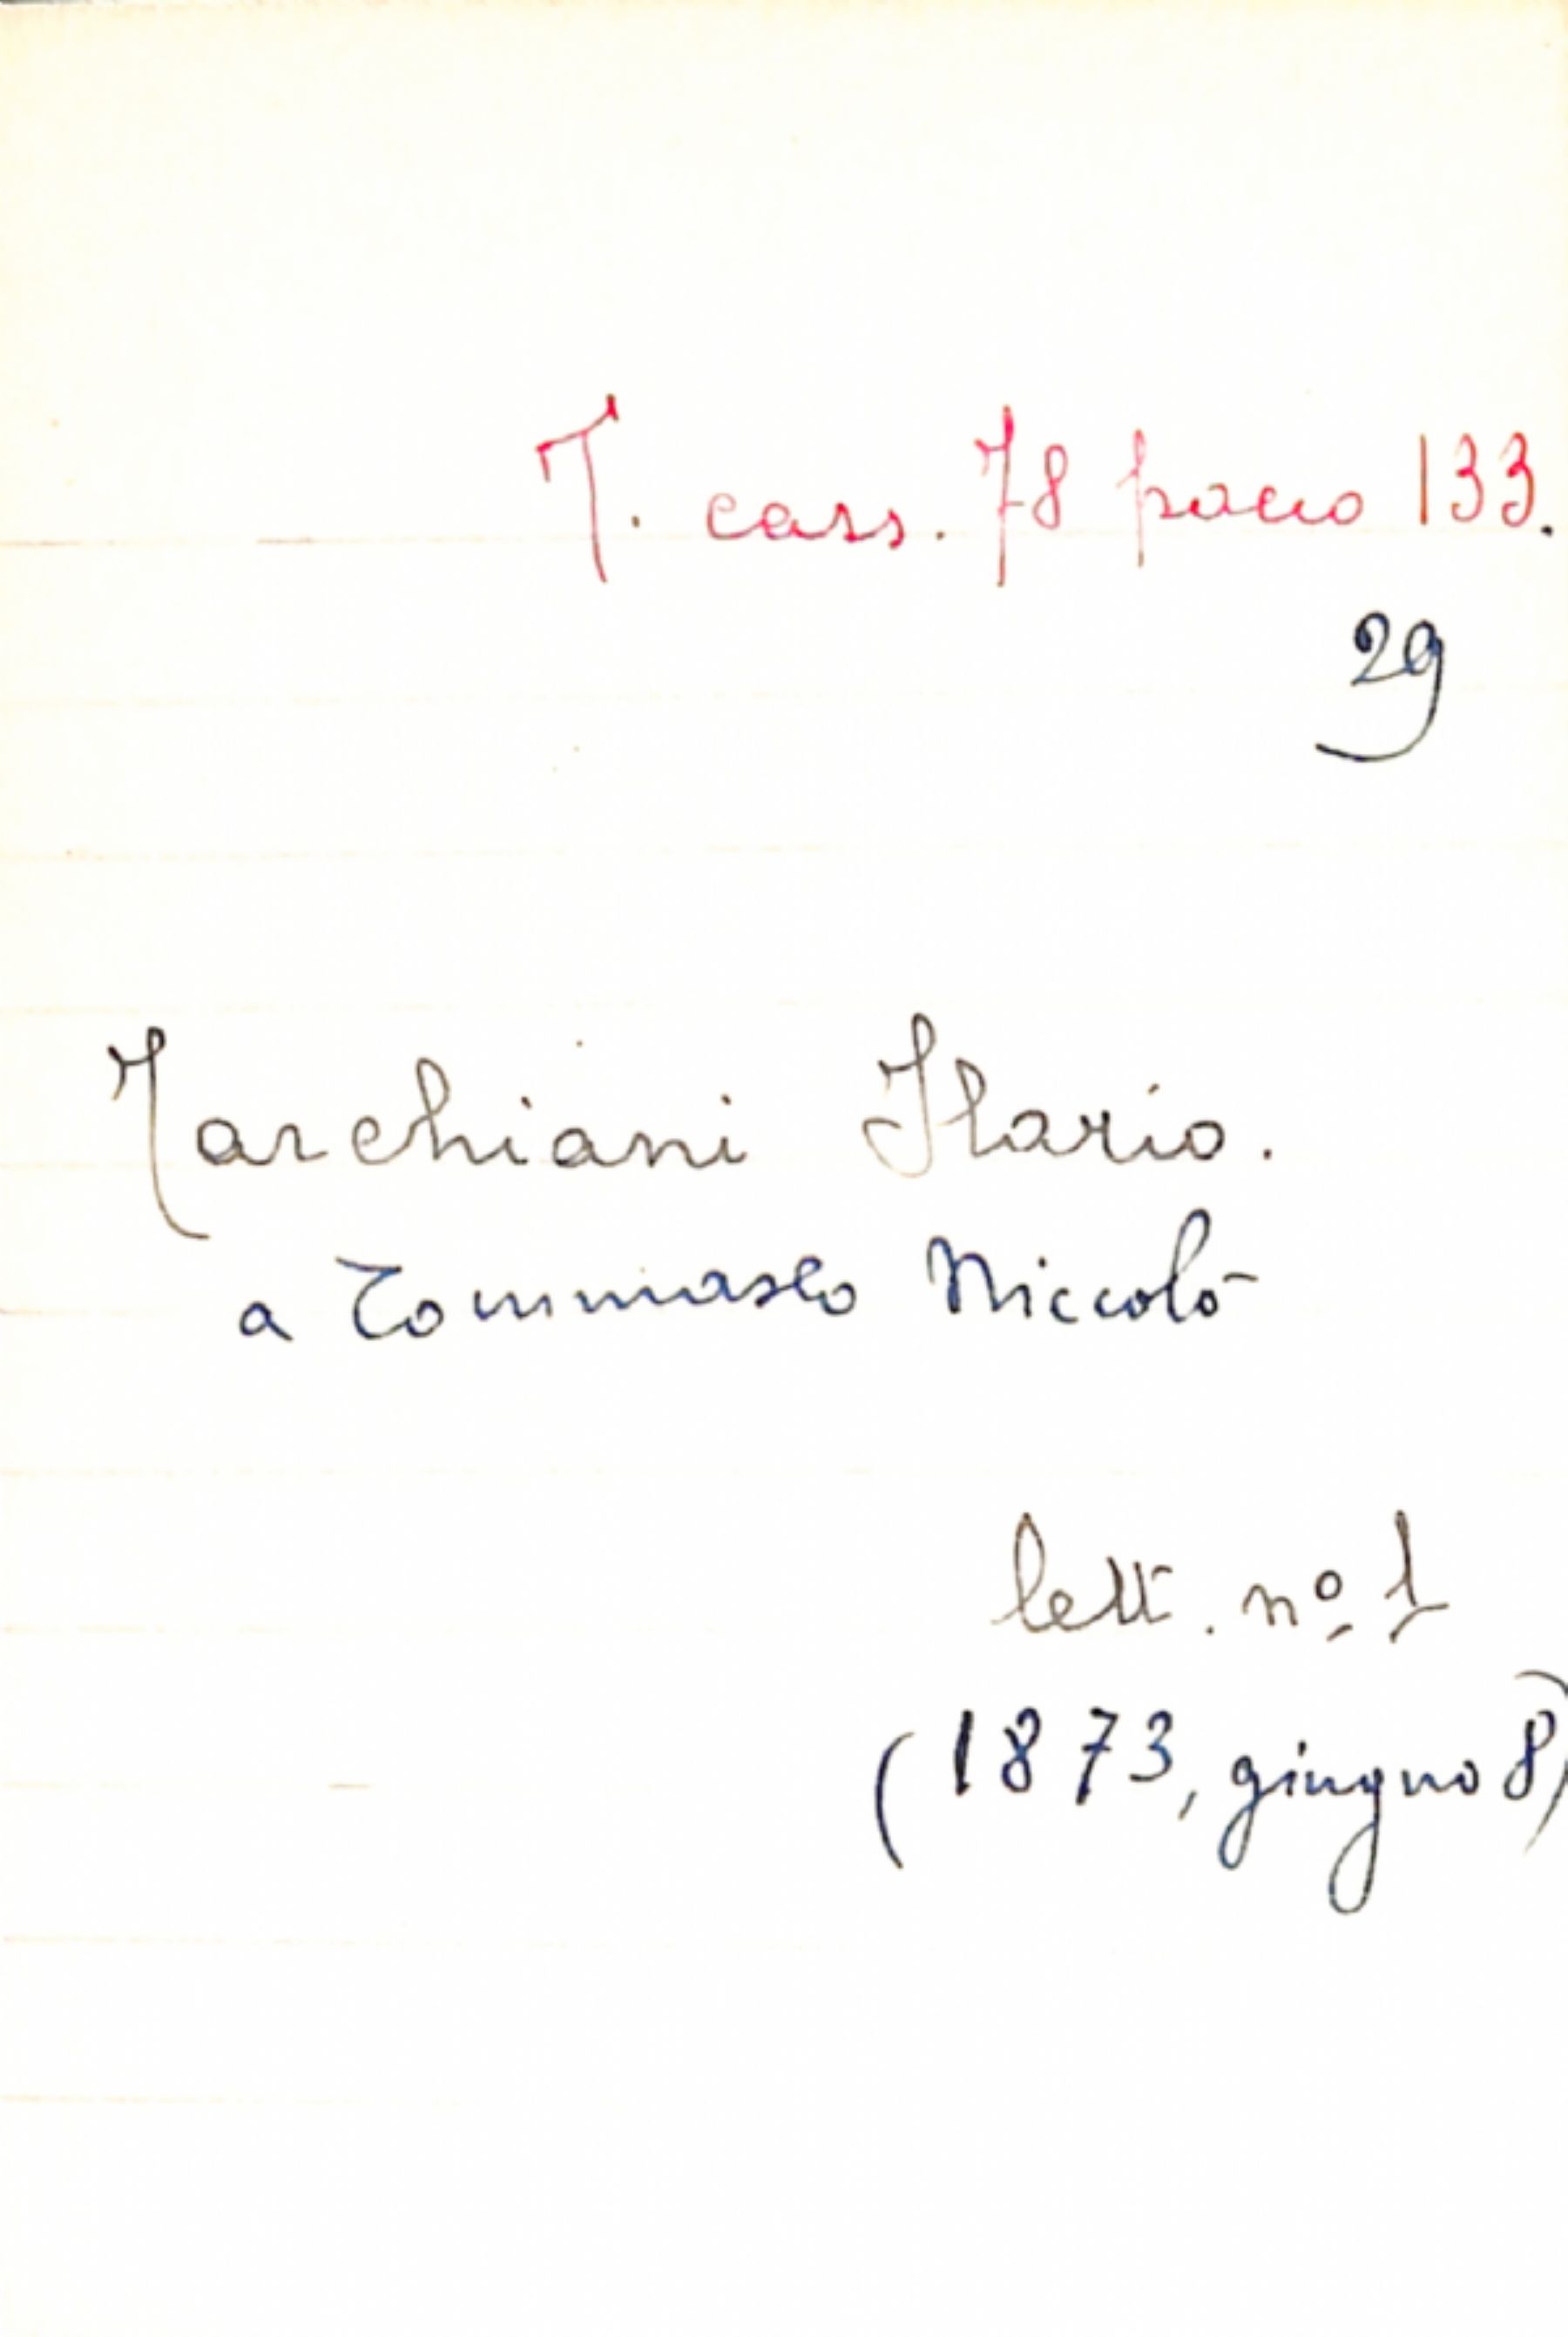 T. cass. 78 pacco 133.
29
Tarchiani Ilario.
a Tommaseo Niccolò
lett. nº 1
(1873, giugno 8)